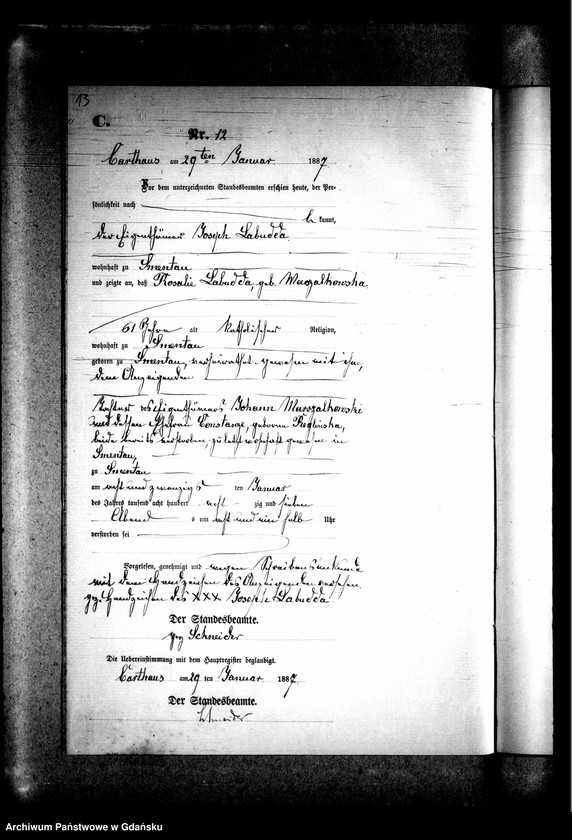 13
C.
Nr. 12
Carthaus am 29ten Januar 1887
Vor dem unterzeichneten Standesbeamten erschien heute, der Per-
sönlichkeit nach
be kannt,
der Eigenthümer Joseph Labudda
wohnhaft zu Smentau
und zeigte an, daß Rosalie Labudda, geb. Marszalkowska
61 Jahre alt katholischer Religion,
wohnhaft zu Smentau
geboren zu Smentau, verheirathet gewesen mit ihm,
dem Anzeigenden
Tochter des Eigenthümers Johann Marszalkowski
und dessen Ehefrau Constanze, geborene
beide bereits verstorben, zuletzt wohnhaft gewesen in
Smentau,
zu Smentau
am acht und zwanzigs ten Januar
des Jahres tausend acht hundert acht zig und sieben
Abend s um acht und ein halb Uhr
verstorben sei
Vorgelesen, genehmigt und wegen Schreibensunkunde
mit dem Handzeichen des Anzeigenden versehen
gez. Handzeichen des XXX Joseph Labudda
Der Standesbeamte.
gez Schneider
Die Uebereinstimmung mit dem Hauptregister beglaubigt.
Carthaus am 29 ten Januar 1887.
Der Standesbeamte.
Schneider
Archiwum Państwowe w Gdańsku